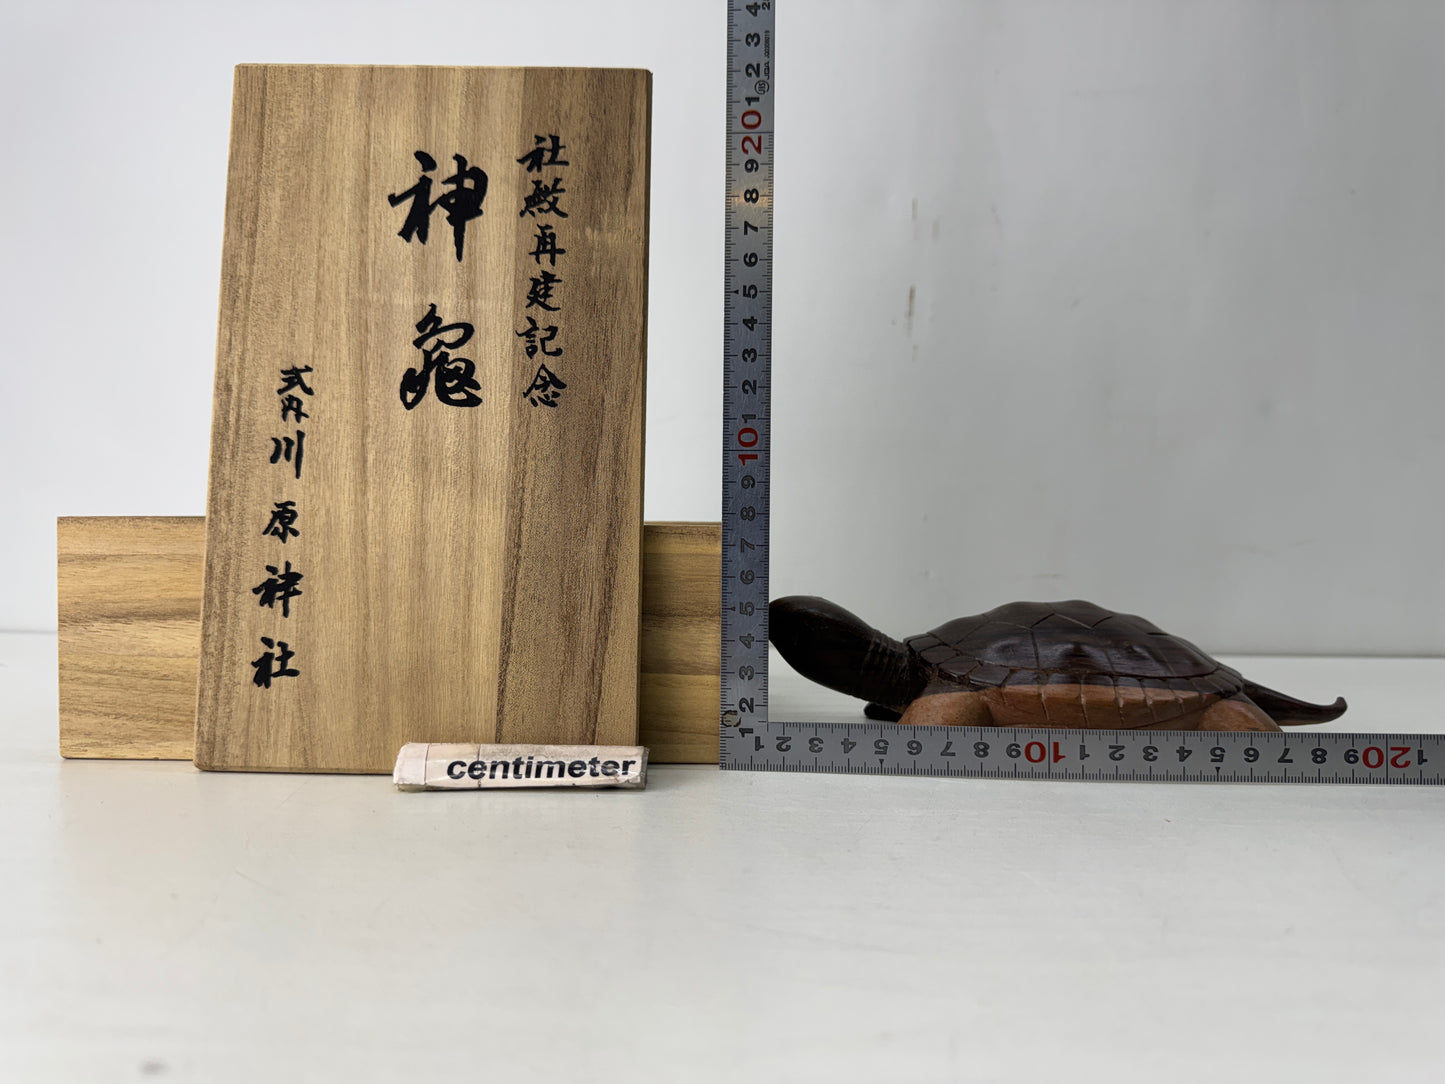 社殿再建記念
神龜
式内川原神社
centimeter
4 3 2 1 20 9 8 7 6 5 4 3 2 1 10 9 8 7 6 5 4 3 2 1
1 2 3 4 5 6 7 8 9 10 1 2 3 4 5 6 7 8 9 20 1
JQA
JIS